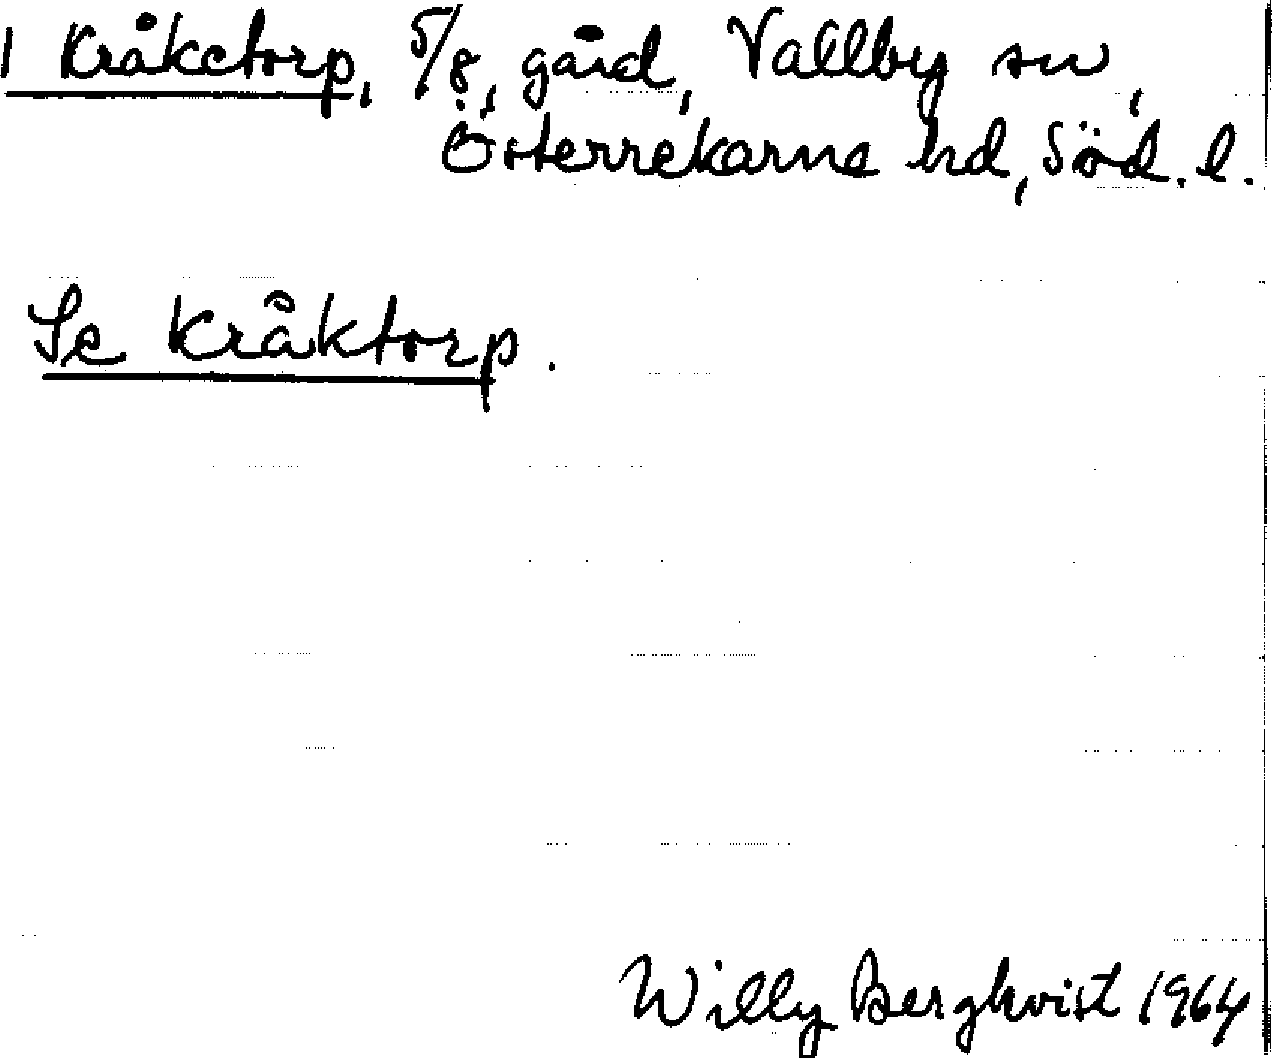 1 Kråketorp, 5/8, gård, Vallby sn,
Österrekarne hd, Söd. l.
Se Kråktorp.
Willy Bergkvist 1964